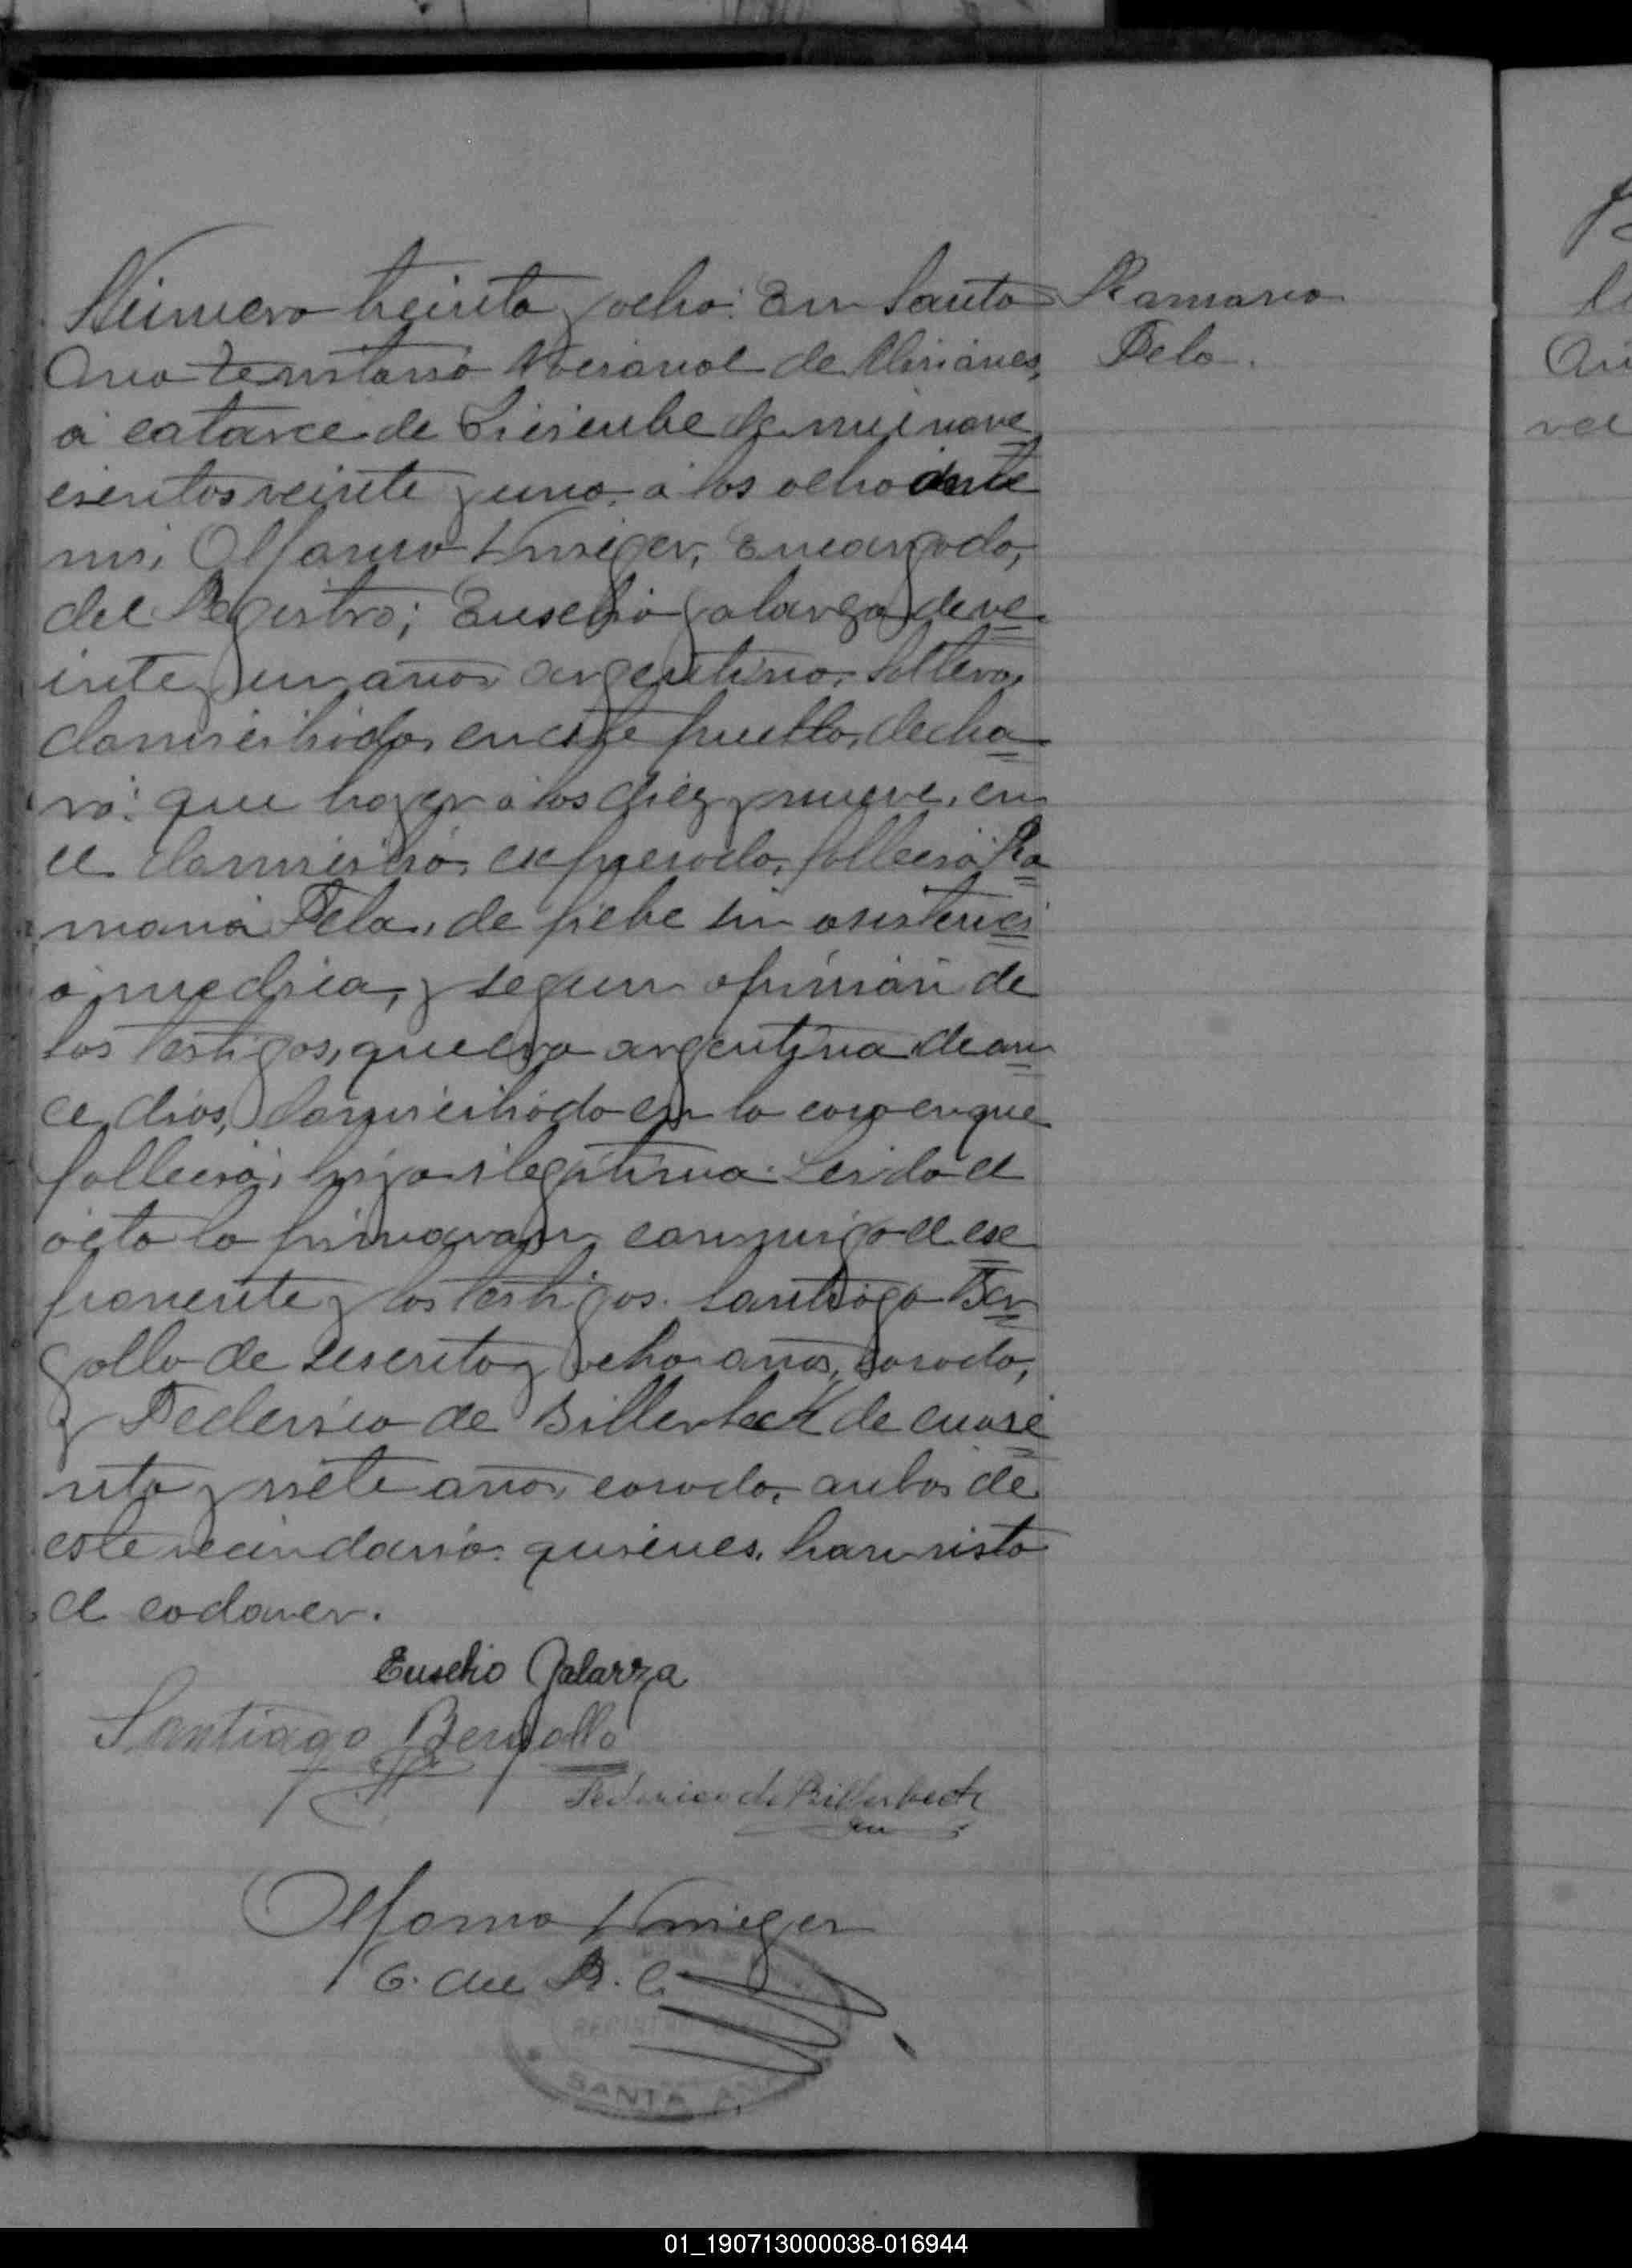 Número treinta y ocho: En Santa
Ana territorio Nacional de Misiones,
a catorce de Diciembre de mil nove
cientos veinte y uno, a las ocho ante
mi, Alfonso Encargado,
del Registro; Eusebio Galarza de ve
inte y un años argentino, soltero,
domiciliado en este pueblo, decla
ró: que hayer a las diez y nueve, en
el domicilio expresado, falleció Ra
mona Fela, de fiebe sin asistenci
a medica, y segun opinión de
los testigos, que era argentina de on
ce dias, domiciliada en la casa en que
falleció, hija ilegitima. Leida el
acta la firmaron conmigo el ex
ponente y los testigos. Santiago Ber
gollo de sesenta y ocho años, casado,
y Federico de Billerbeck de cuare
nta y siete años, casado, anbos de
este vecindario quienes, han visto
el cadaver.
Eusebio Galarza
Santiago Bergollo
Federico de Billerbeck
Alfonso
E. del R. C.
REGISTRO
SANTA ANA
Ramona
Fela.
01_190713000038-016944